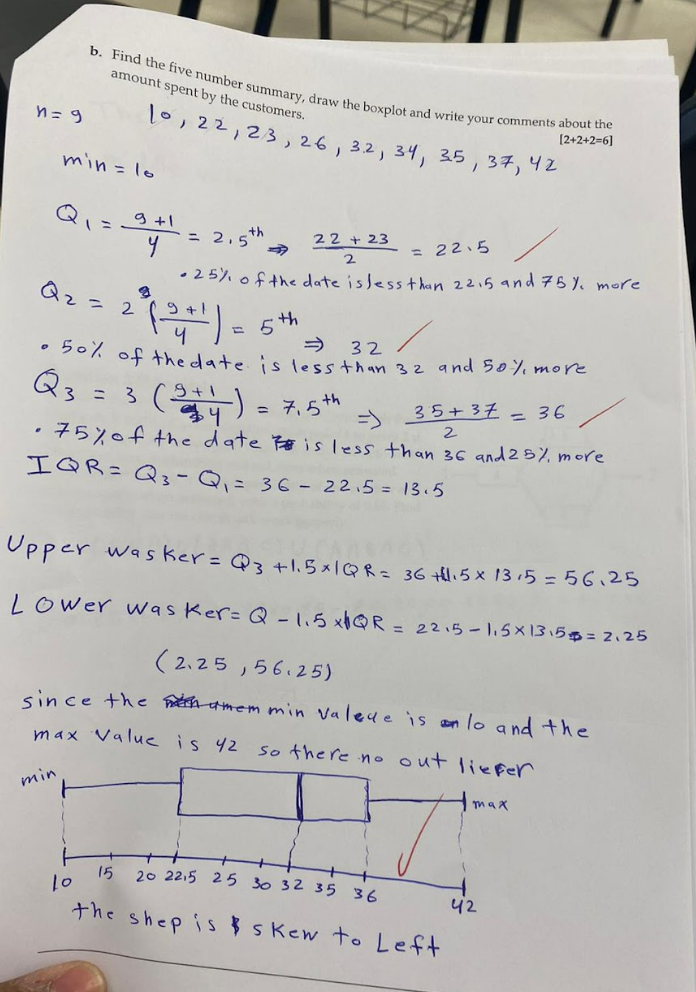 b. Find the five number summary, draw the boxplot and write your comments about the
amount spent by the customers.
[2+2+2=6]
n = 9 10, 22, 23, 26, 32, 34, 35, 37, 42
min = 10
Q1 = 9+1/4 = 2.5th ⇒ 22 + 23/2 = 22.5
• 25% of the date is less than 22.5 and 75% more
Q2 = 2 (9+1/4) = 5th ⇒ 32
• 50% of the date is less than 32 and 50% more
Q3 = 3 (9+1/4) = 7.5th ⇒ 35+37/2 = 36
• 75% of the date is less than 36 and 25% more
IQR = Q3 - Q1 = 36 - 22.5 = 13.5
Upper wasker = Q3 + 1.5 x IQR = 36 + 1.5 x 13.5 = 56.25
Lower wasker = Q - 1.5 x IQR = 22.5 - 1.5 x 13.5 = 2.25
(2.25, 56.25)
since the min value is 10 and the
max value is 42 so there no out liefer
min
max
10 15 20 22.5 25 30 32 35 36 42
the shep is skew to Left